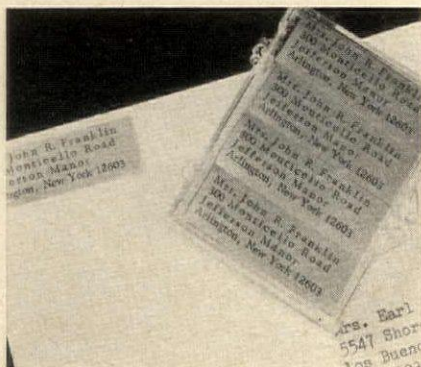 John R. Franklin
Monticello Road
erson Manor
ngton, New York 12603
Mrs. John R. Franklin
300 Monticello Road
Jefferson Manor
Arlington, New York 12603
Mrs. John R. Franklin
300 Monticello Road
Jefferson Manor
Arlington, New York 12603
Mrs. John R. Franklin
300 Monticello Road
Jefferson Manor
Arlington, New York 12603
Mrs. John R. Franklin
300 Monticello Road
Jefferson Manor
Arlington, New York 12603
rs. Earl
5547 Shor
los Buen